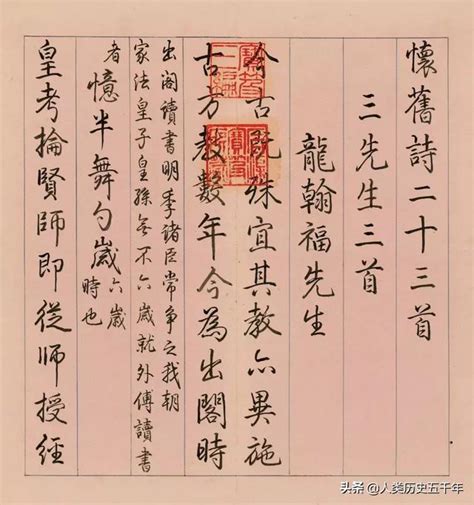 懷舊詩二十三首
三先生三首
龍翰福先生
今古既殊宜其教亦異施
古方教數年今為出閣時
出閣讀書明季諸臣常爭之我朝
家法皇子皇孫無不六歲就外傅讀書
者憶半舞勺歲六歲時也
皇考掄賢師即從師授經
头条 @人类历史五千年